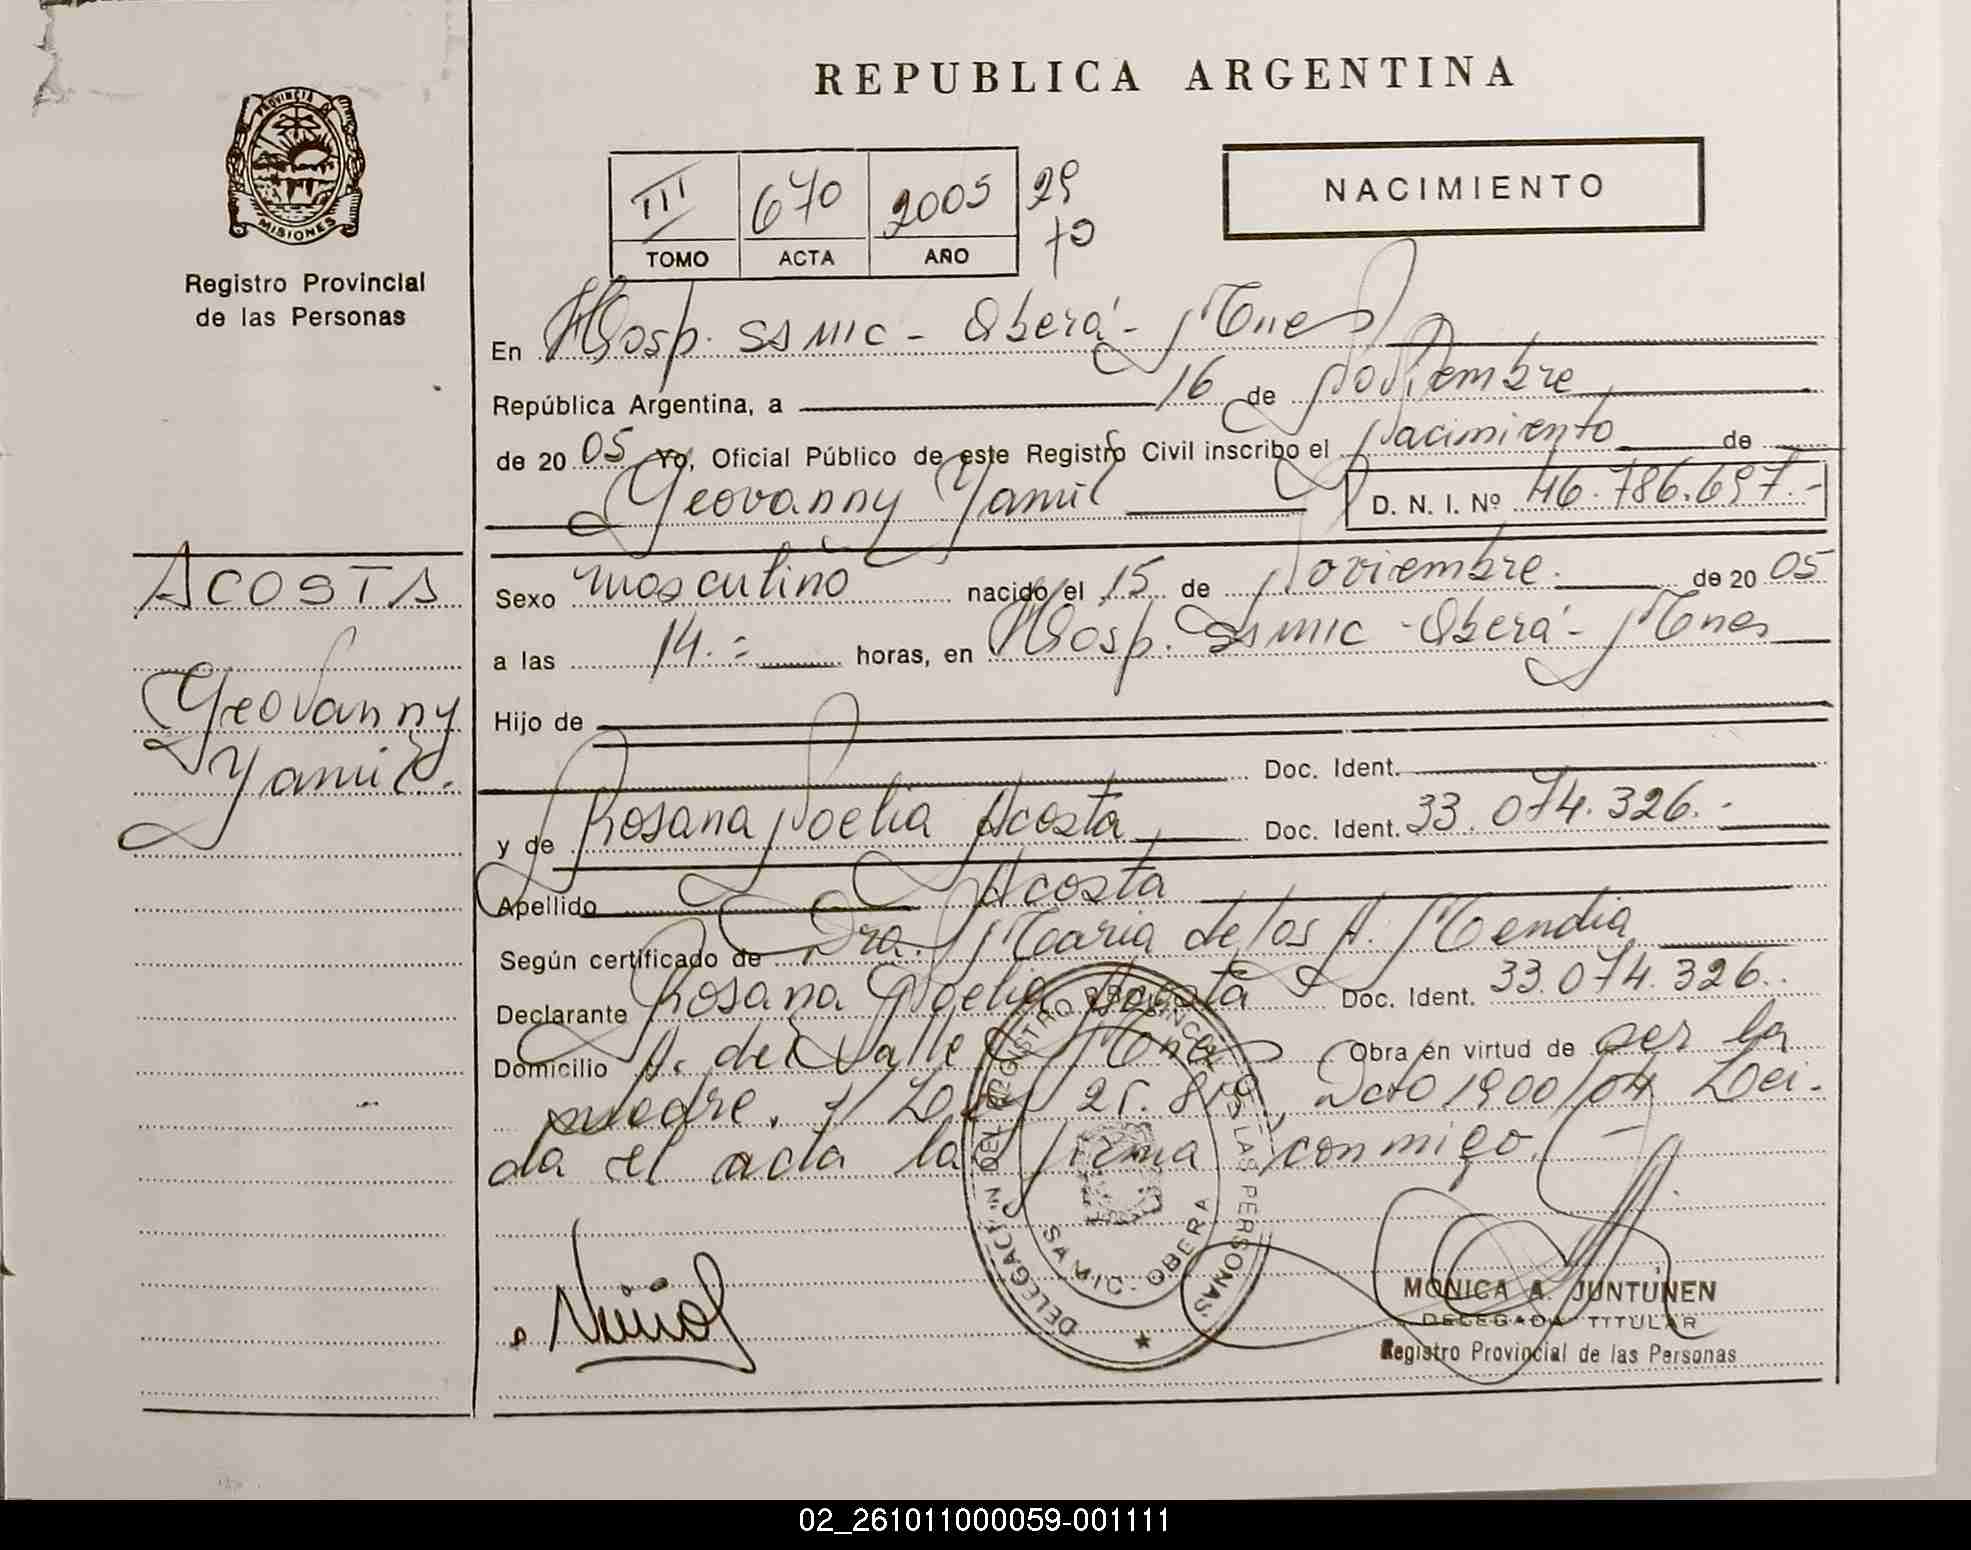 REPUBLICA ARGENTINA
PROVINCIA DE
MISIONES
Registro Provincial
de las Personas
III 670 2005 29
TOMO ACTA AÑO 70
NACIMIENTO
En Hosp. SAMIC - Oberá - Mnes
República Argentina, a 16 de Noviembre
de 20 05 Yo, Oficial Público de este Registro Civil inscribo el Nacimiento de
Geovanny Yamil D. N. I. Nº 46.786.697.-
ACOSTA
Geovanny
Yamil.
Sexo masculino nacido el 15 de Noviembre. de 20 05
a las 14.= horas, en Hosp. SAMIC - Oberá - Mnes
Hijo de
Doc. Ident.
y de Rosana Noelia Acosta, Doc. Ident. 33.074.326.-
Apellido Acosta
Según certificado de Dra. Maria de los A. Mendia
Declarante Rosana Noelia Acosta Doc. Ident. 33.074.326.
Domicilio A. del Valle Mnes Obra en virtud de ser la
madre. Dcto 1900/04 Lei-
da el acta la firma conmigo. -
DELEGACION DEL REGISTRO PROVINCIAL DE LAS PERSONAS
SAMIC - OBERA
MONICA A. JUNTUNEN
DELEGADA TITULAR
Registro Provincial de las Personas
02_261011000059-001111